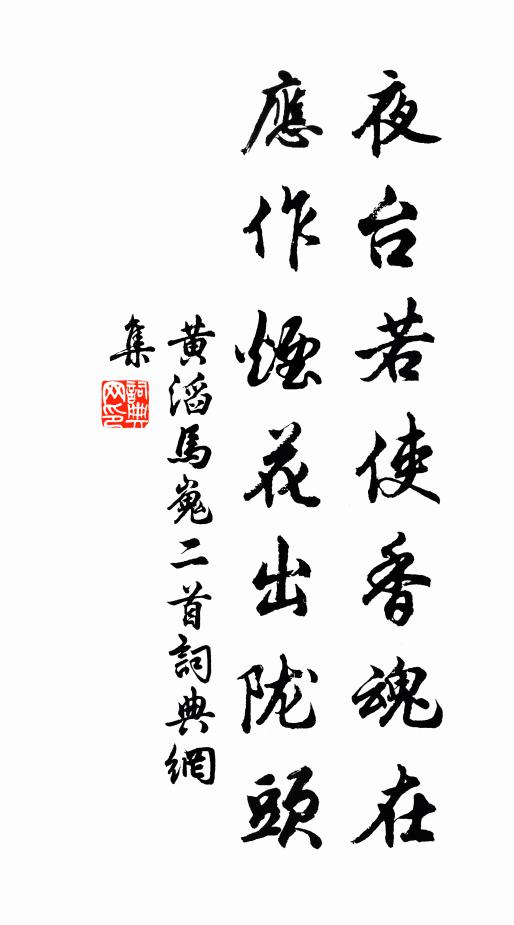 夜台若使香魂在
應作煙花出陇頭
黄滔馬嵬二首詞典網
集
詞典網印